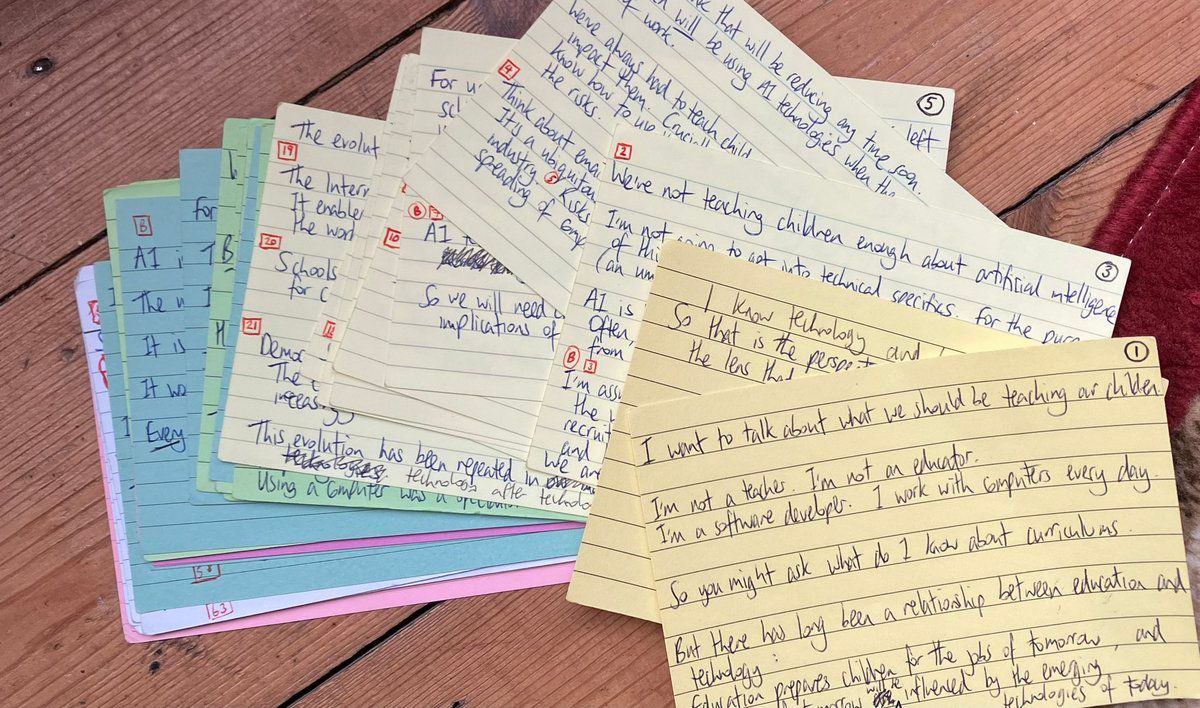 ①
I want to talk about what we should be teaching our children
I'm not a teacher. I'm not an educator.
I'm a software developer. I work with computers every day.
So you might ask what do I know about curriculums.
But there has long been a relationship between education and
technology:
Education prepares children for the jobs of tomorrow, and
tomorrow will be influenced by the emerging
technologies of today.
I know technology and
So that is the perspect
the lens that
③
2
We're not teaching children enough about artificial intelligence
I'm not going to get into technical specifics. For the purp
of this
(an um
AI is
Often,
from
B 3
I'm assu
the w
recruit
and
we are
⑤
left
k that will be reducing any time soon.
n will be using AI technologies when the
of work.
We've always had to teach child
impact them. Crucially
know how to use
the risks.
4
Think about emai
It's a ubiquitous
industry. 5 Risks
spending of comp
For u
sch
B 7
AI
10
So we will need
implications of
The evolut
19
The Intern
It enables
the word
20
Schools
for c
21
Democ
The c
increasingg
This evolution has been repeated in
technology after technolo
Using a computer was a
For
B
H
B
AI i
The u
It is
It wo
Every
58
63